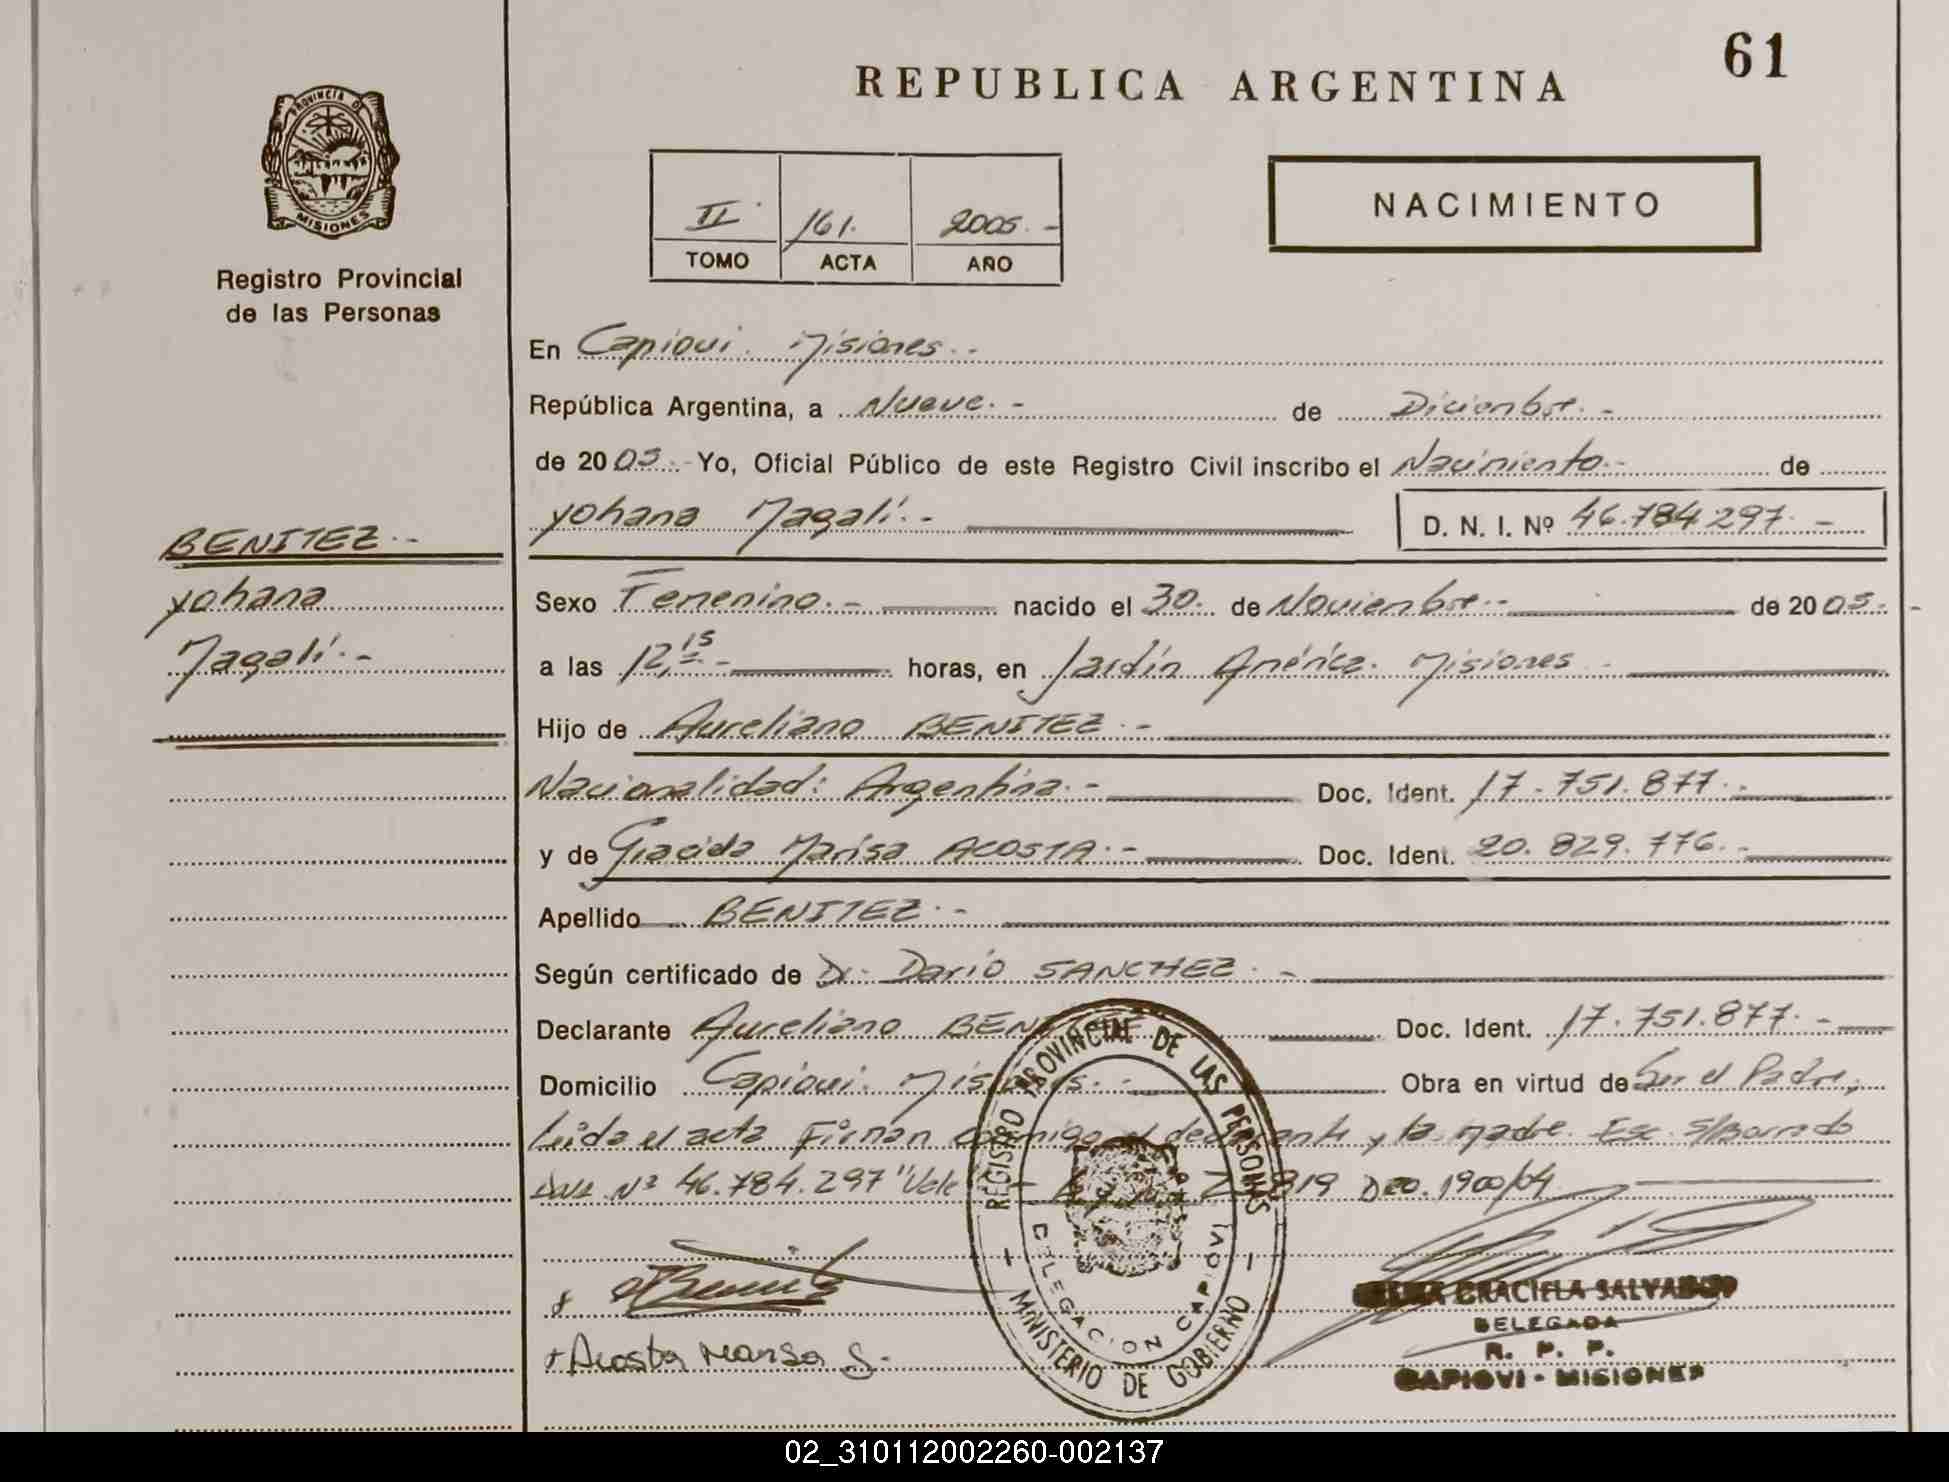 61
REPUBLICA ARGENTINA
PROVINCIA D
MISIONES
Registro Provincial
de las Personas
II. 161. 2005.-
TOMO ACTA AÑO
NACIMIENTO
En Capiovi. Misiones.-
República Argentina, a Nueve.- de Diciembre.-
de 2005.- Yo, Oficial Público de este Registro Civil inscribo el Nacimiento.- de
Yohana Magalí.- D. N. I. Nº 46.784.297.-
BENITEZ.-
Yohana
Magalí.-
Sexo Femenino.- nacido el 30. de Noviembre.- de 2005.-
a las 12,15.- horas, en Jardín América. Misiones.-
Hijo de Aureliano BENITEZ.-
Nacionalidad: Argentina.- Doc. Ident. 17.751.877.-
y de Marisa ACOSTA.- Doc. Ident. 20.829.776.-
Apellido BENITEZ.-
Según certificado de Dr. Darío SANCHEZ.-
Declarante Aureliano BENITEZ Doc. Ident. 17.751.877.-
Domicilio Capiovi. Misiones.- Obra en virtud de Ser el Padre,
Leida el acta Firman conmigo el declarante y la madre. Esc. S/Borrado
DNI Nº 46.784.297 "Vale" 819 Dto. 1900/04
REGISTRO PROVINCIAL DE LAS PERSONAS
DELEGACION CAPIOVI
MINISTERIO DE GOBIERNO
+ Acosta Marisa G.
GRACIELA SALVADOR
DELEGADA
R. P. P.
CAPIOVI - MISIONES
02_310112002260-002137